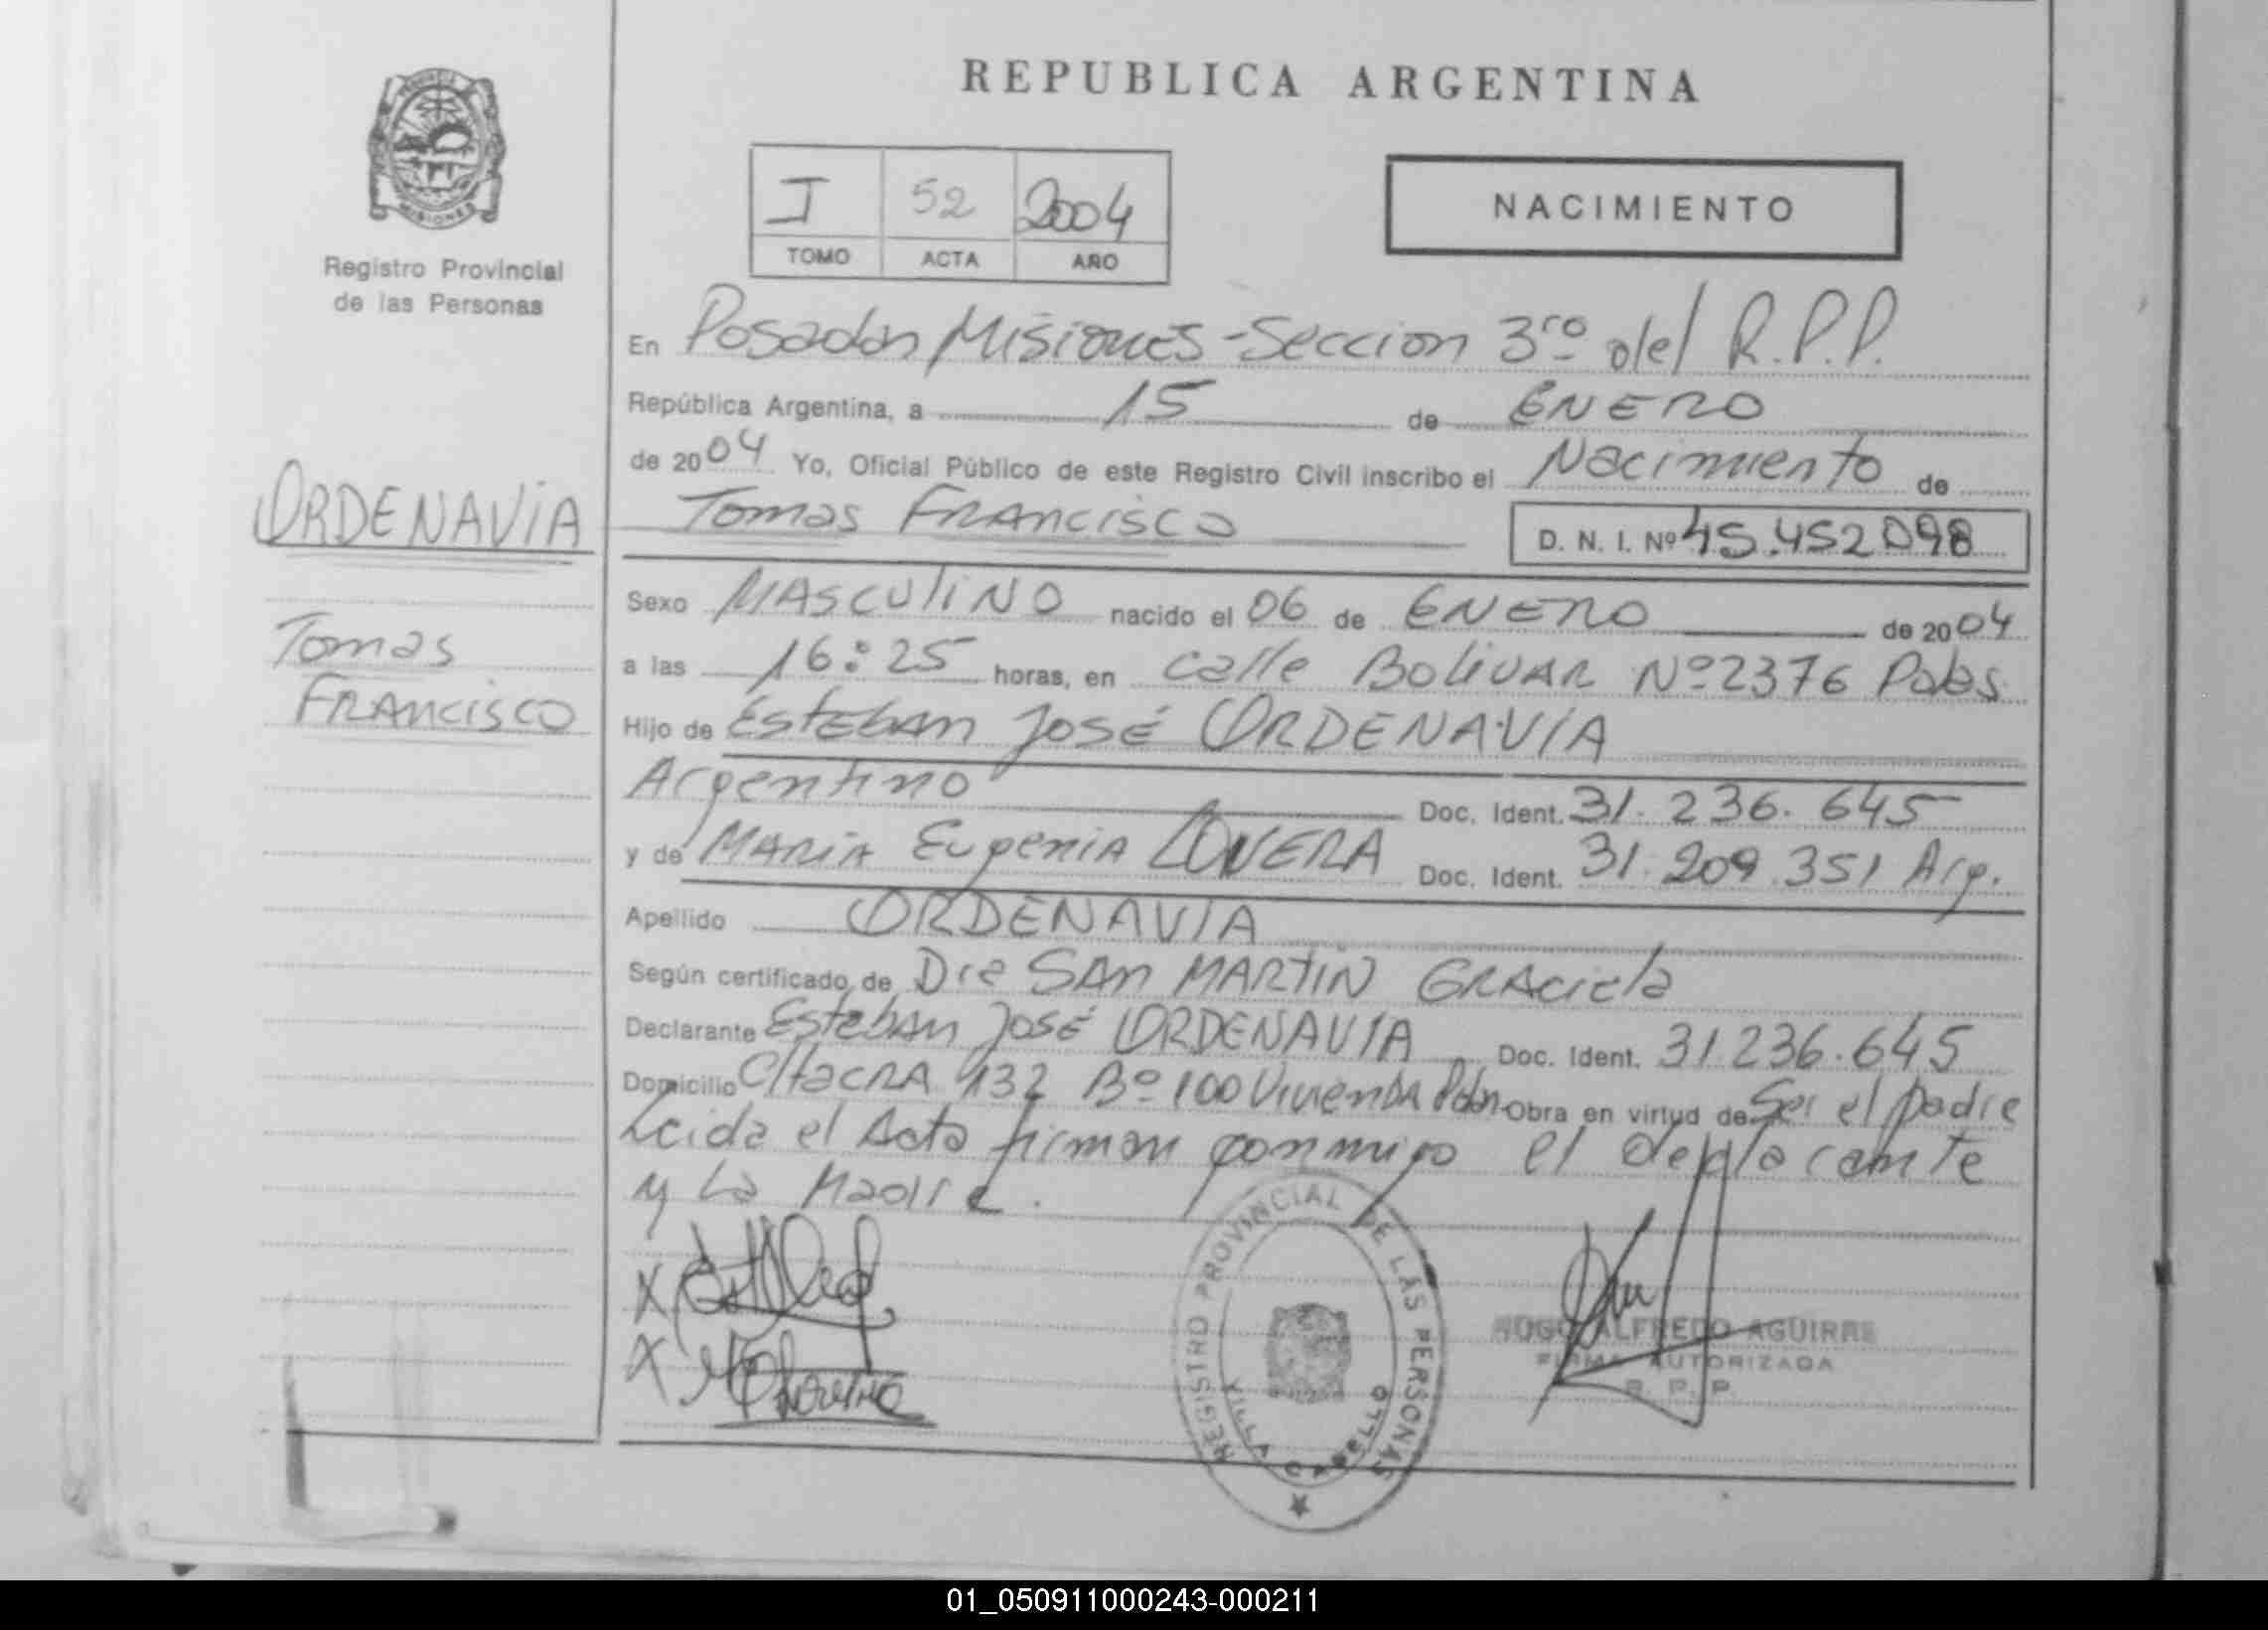 REPUBLICA ARGENTINA
PROVINCIA
MISIONES
Registro Provincial
de las Personas
I 52 2004
TOMO ACTA AÑO
NACIMIENTO
En Posadas Misiones - Seccion 3ro del R.P.P.
República Argentina, a 15 de ENERO
de 2004 Yo, Oficial Público de este Registro Civil inscribo el Nacimiento de
Tomas FRANCISCO D. N. I. Nº 45.452098
ORDENAVIA
Tomas
FRANCISCO
Sexo MASCULINO nacido el 06 de ENERO de 2004
a las 16:25 horas, en calle BOLIVAR Nº 2376 Pdas
Hijo de Esteban José ORDENAVIA
Argentino Doc. Ident. 31.236.645
y de MARIA Eugenia Doc. Ident. 31.209.351 Arg.
Apellido ORDENAVIA
Según certificado de Dra SAN MARTIN GRACiela
Declarante Esteban José ORDENAVIA Doc. Ident. 31.236.645
Domicilio CHACRA 132 Bº 100 Vivienda Pdas Obra en virtud de Ser el padre
Leida el Acta firman conmigo el declarante
y La Madre.
X
X
REGISTRO PROVINCIAL DE LAS PERSONAS
VILLA CABELLO
HUGO ALFREDO AGUIRRE
FIRMA AUTORIZADA
R. P. P.
01_050911000243-000211